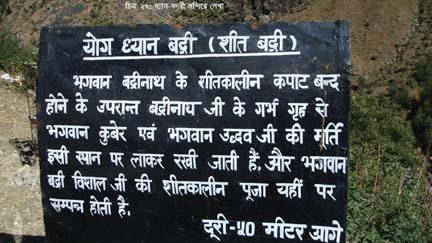 চিত্র ২৭: ধ্যান বদ্রী মন্দিরে লেখা
योग ध्यान बद्री (शीत बद्री)
भगवान बद्रीनाथ के शीतकालीन कपाट बन्द
होने के उपरान्त बद्रीनाथ जी के गर्भ गृह से
भगवान कुबेर एवं भगवान उद्धव जी की मूर्ति
इसी स्थान पर लाकर रखी जाती हैं. और भगवान
बद्री विशाल जी की शीतकालीन पूजा यहीं पर
सम्पन्न होती है.
दूरी-५० मीटर आगे